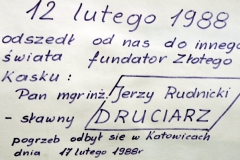 12 lutego 1988
odszedł od nas do innego
świata fundator Złotego
Kasku:
Pan mgr inż. Jerzy Rudnicki
- sławny DRUCIARZ
pogrzeb odbył się w Katowicach
dnia 17 lutego 1988r